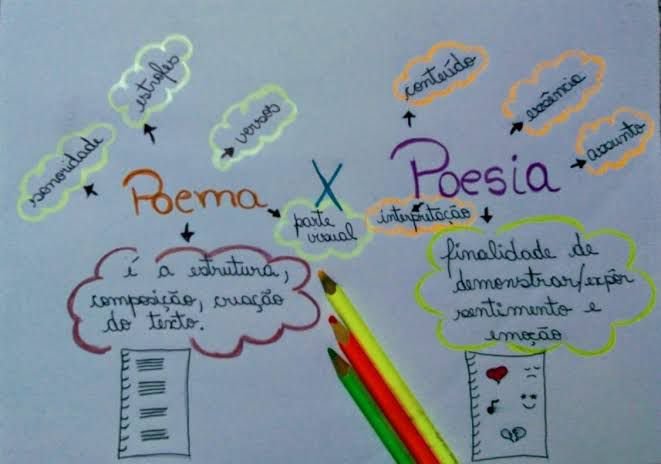 estrofes
versos
sonoridade
Poema
X
parte
visual
é a estrutura,
composição, criação
do texto.
conteúdo
essência
assunto
Poesia
interpretação
finalidade de
demonstrar/expôr
sentimento e
emoção